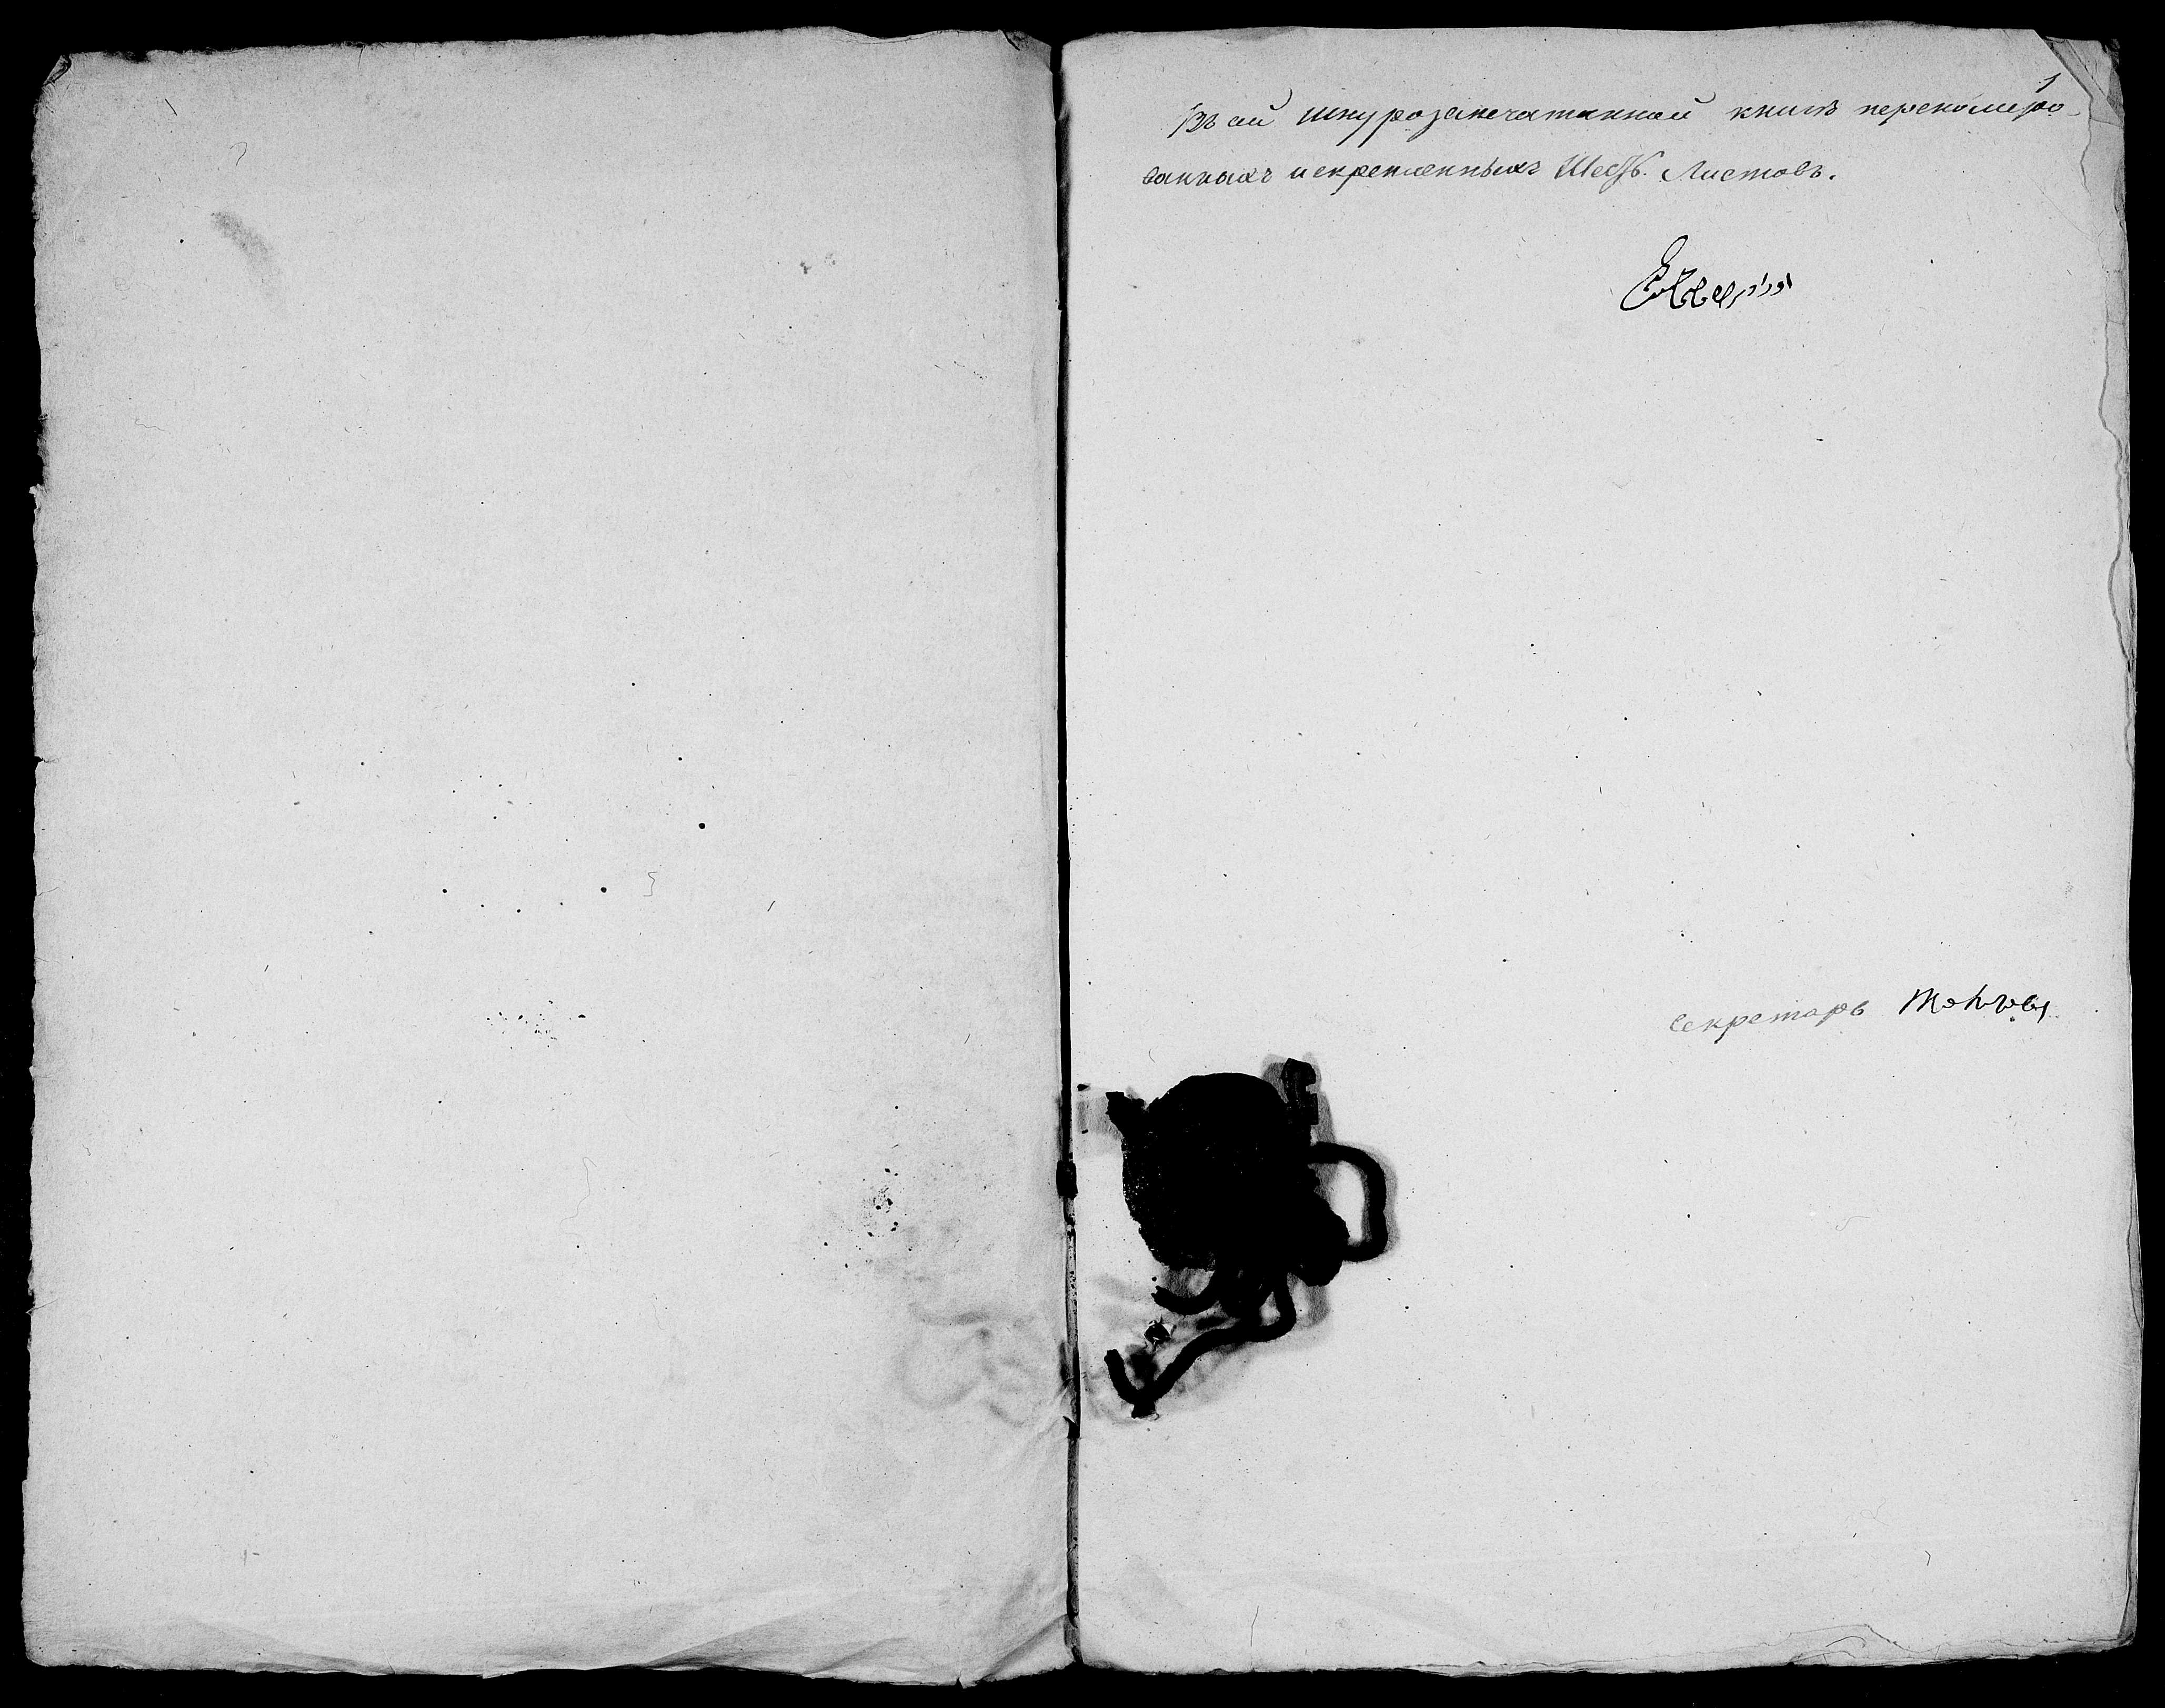 1
Въ сей шнурозапечатанной книгѣ перенумеро-
ванныхъ и скрепленныхъ Шесть. Листовъ.
Секретарь